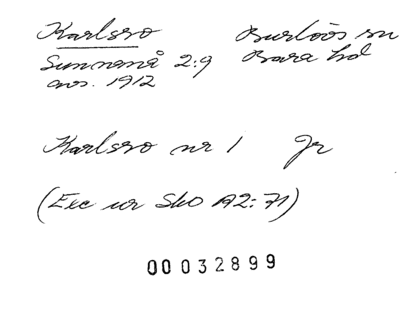 Karlsro Burlövs sn
Sunnanå 2:9 Bara hd
avs. 1912
Karlsro nr 1 Jr
(Exc ur SkO A2:71)
00032899